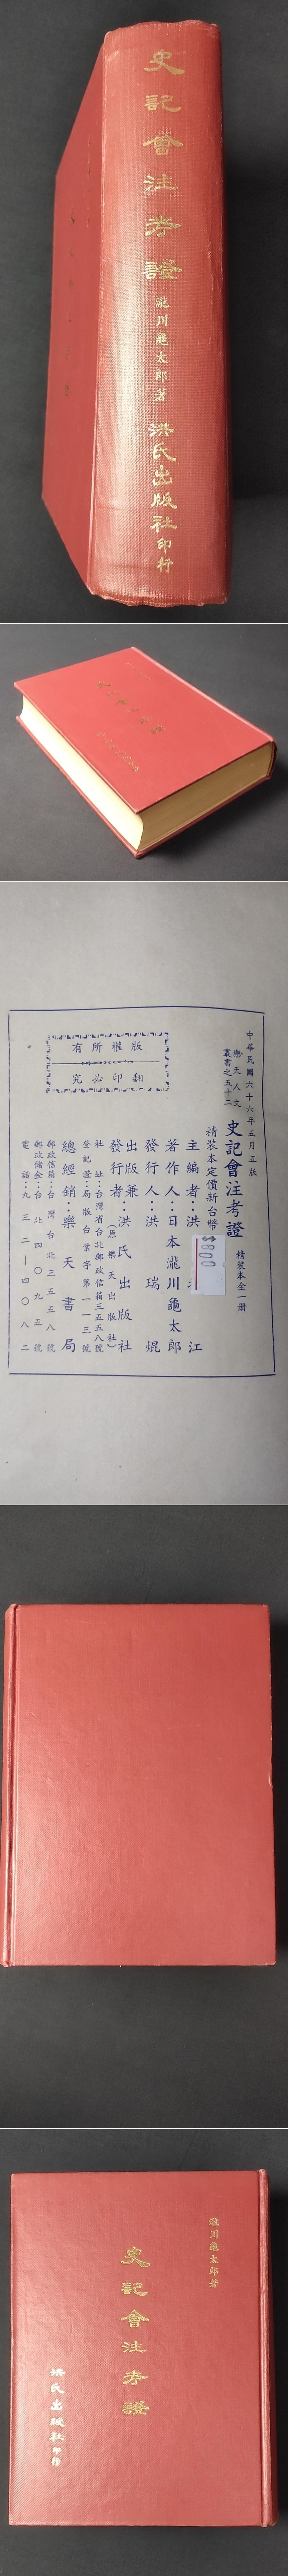 史記會注考證
瀧川龜太郎著
洪氏出版社印行
中華民國六十六年五月五版
樂天人文
叢書之五十二
史記會注考證
精裝本全一册
精裝本定價新台幣
$800
主編者：洪
江
著作人：日本瀧川龜太郎
發行人：洪瑞焜
出版兼
發行者：洪氏出版社
（原樂天出版社）
社址：台灣省台北郵政信箱三五五八號
登記證：局版台業字第一一三號
總經銷：樂天書局
郵政信箱：台灣台北三五三八號
郵政儲金：台北四〇九五號
電話：九三二一四〇八二
版權所有
翻印必究
瀧川龜太郎著
史記會注考證
洪氏出版社印行